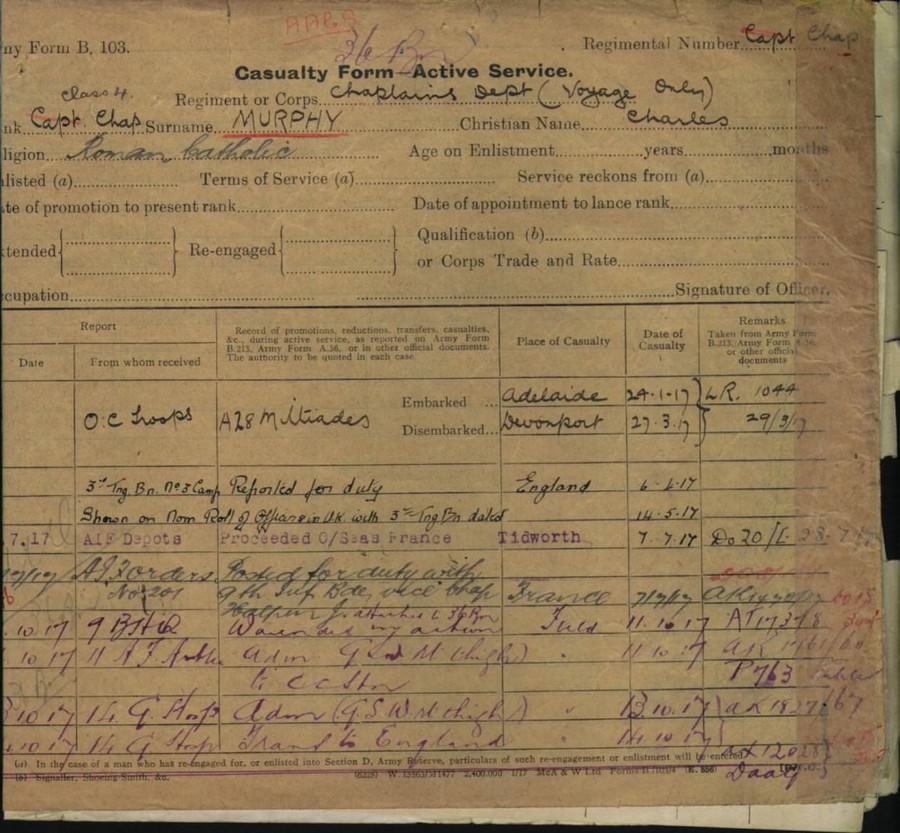 36 Bn
ny Form B, 103.
Regimental Number Capt Chap
Casualty Form—Active Service.
Class 4.
Regiment or Corps Chaplains Dept (Voyage Only)
nk Capt. Chap Surname MURPHY Christian Name Charles
ligion Roman Catholic Age on Enlistment years months
listed (a) Terms of Service (a) Service reckons from (a)
te of promotion to present rank Date of appointment to lance rank
xtended Re-engaged Qualification (b)
or Corps Trade and Rate
ccupation Signature of Officer.
Report
Date
From whom received
Record of promotions, reductions, transfers, casualties, &c., during active service, as reported on Army Form B.213, Army Form A.36, or in other official documents. The authority to be quoted in each case
Place of Casualty
Date of Casualty
Remarks
Taken from Army Form B.213, Army Form A.36, or other official documents
O.C Troops A28 Miltiades Embarked Adelaide 24-1-17 LR. 1044
Disembarked Devonport 27.3.17 29/3/17
3rd Trg Bn. No 3 Camp Reported for duty England
Shown on Nom Roll of Officers in UK with 3rd Trg Bn dated 14.5.17
7.17 AIF Depots Proceeded O/Seas France Tidworth 7.7.17 Do 20/
AIF orders Posted for duty with
No 201 9th Inf Bde, vice Chap France
J. attached to 36 Bn
.10 17 9 BHQ Wounded in action Field 11.10 17
10 17 11 A F Amb Adm G S W thigh " 11 10 17
to C C Stn P763
10 17 14 G Hosp Adm (G.S.W. R thigh) " 13.10.17
10.17 14 G Hosp Trans to England " 14 10 17
(a) In the case of a man who has re-engaged for, or enlisted into Section D, Army Reserve, particulars of such re-engagement or enlistment will be entered.
(b) Signaller, Shoeing-Smith, &c.
2,400,000 1/17 McA & W Ltd